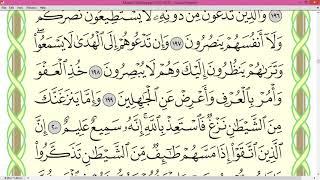 ١٩٦ وَالَّذِينَ تَدْعُونَ مِن دُونِهِ لَا يَسْتَطِيعُونَ نَصْرَكُمْ
وَلَا أَنفُسَهُمْ يَنصُرُونَ ١٩٧ وَإِن تَدْعُوهُمْ إِلَى الْهُدَىٰ لَا يَسْمَعُوا
وَتَرَاهُمْ يَنظُرُونَ إِلَيْكَ وَهُمْ لَا يُبْصِرُونَ ١٩٨ خُذِ الْعَفْوَ
وَأْمُرْ بِالْعُرْفِ وَأَعْرِضْ عَنِ الْجَاهِلِينَ ١٩٩ وَإِمَّا يَنزَغَنَّكَ
مِنَ الشَّيْطَانِ نَزْغٌ فَاسْتَعِذْ بِاللَّهِ إِنَّهُ سَمِيعٌ عَلِيمٌ ٢٠٠ إِنَّ
الَّذِينَ اتَّقَوْا إِذَا مَسَّهُمْ طَائِفٌ مِّنَ الشَّيْطَانِ تَذَكَّرُوا